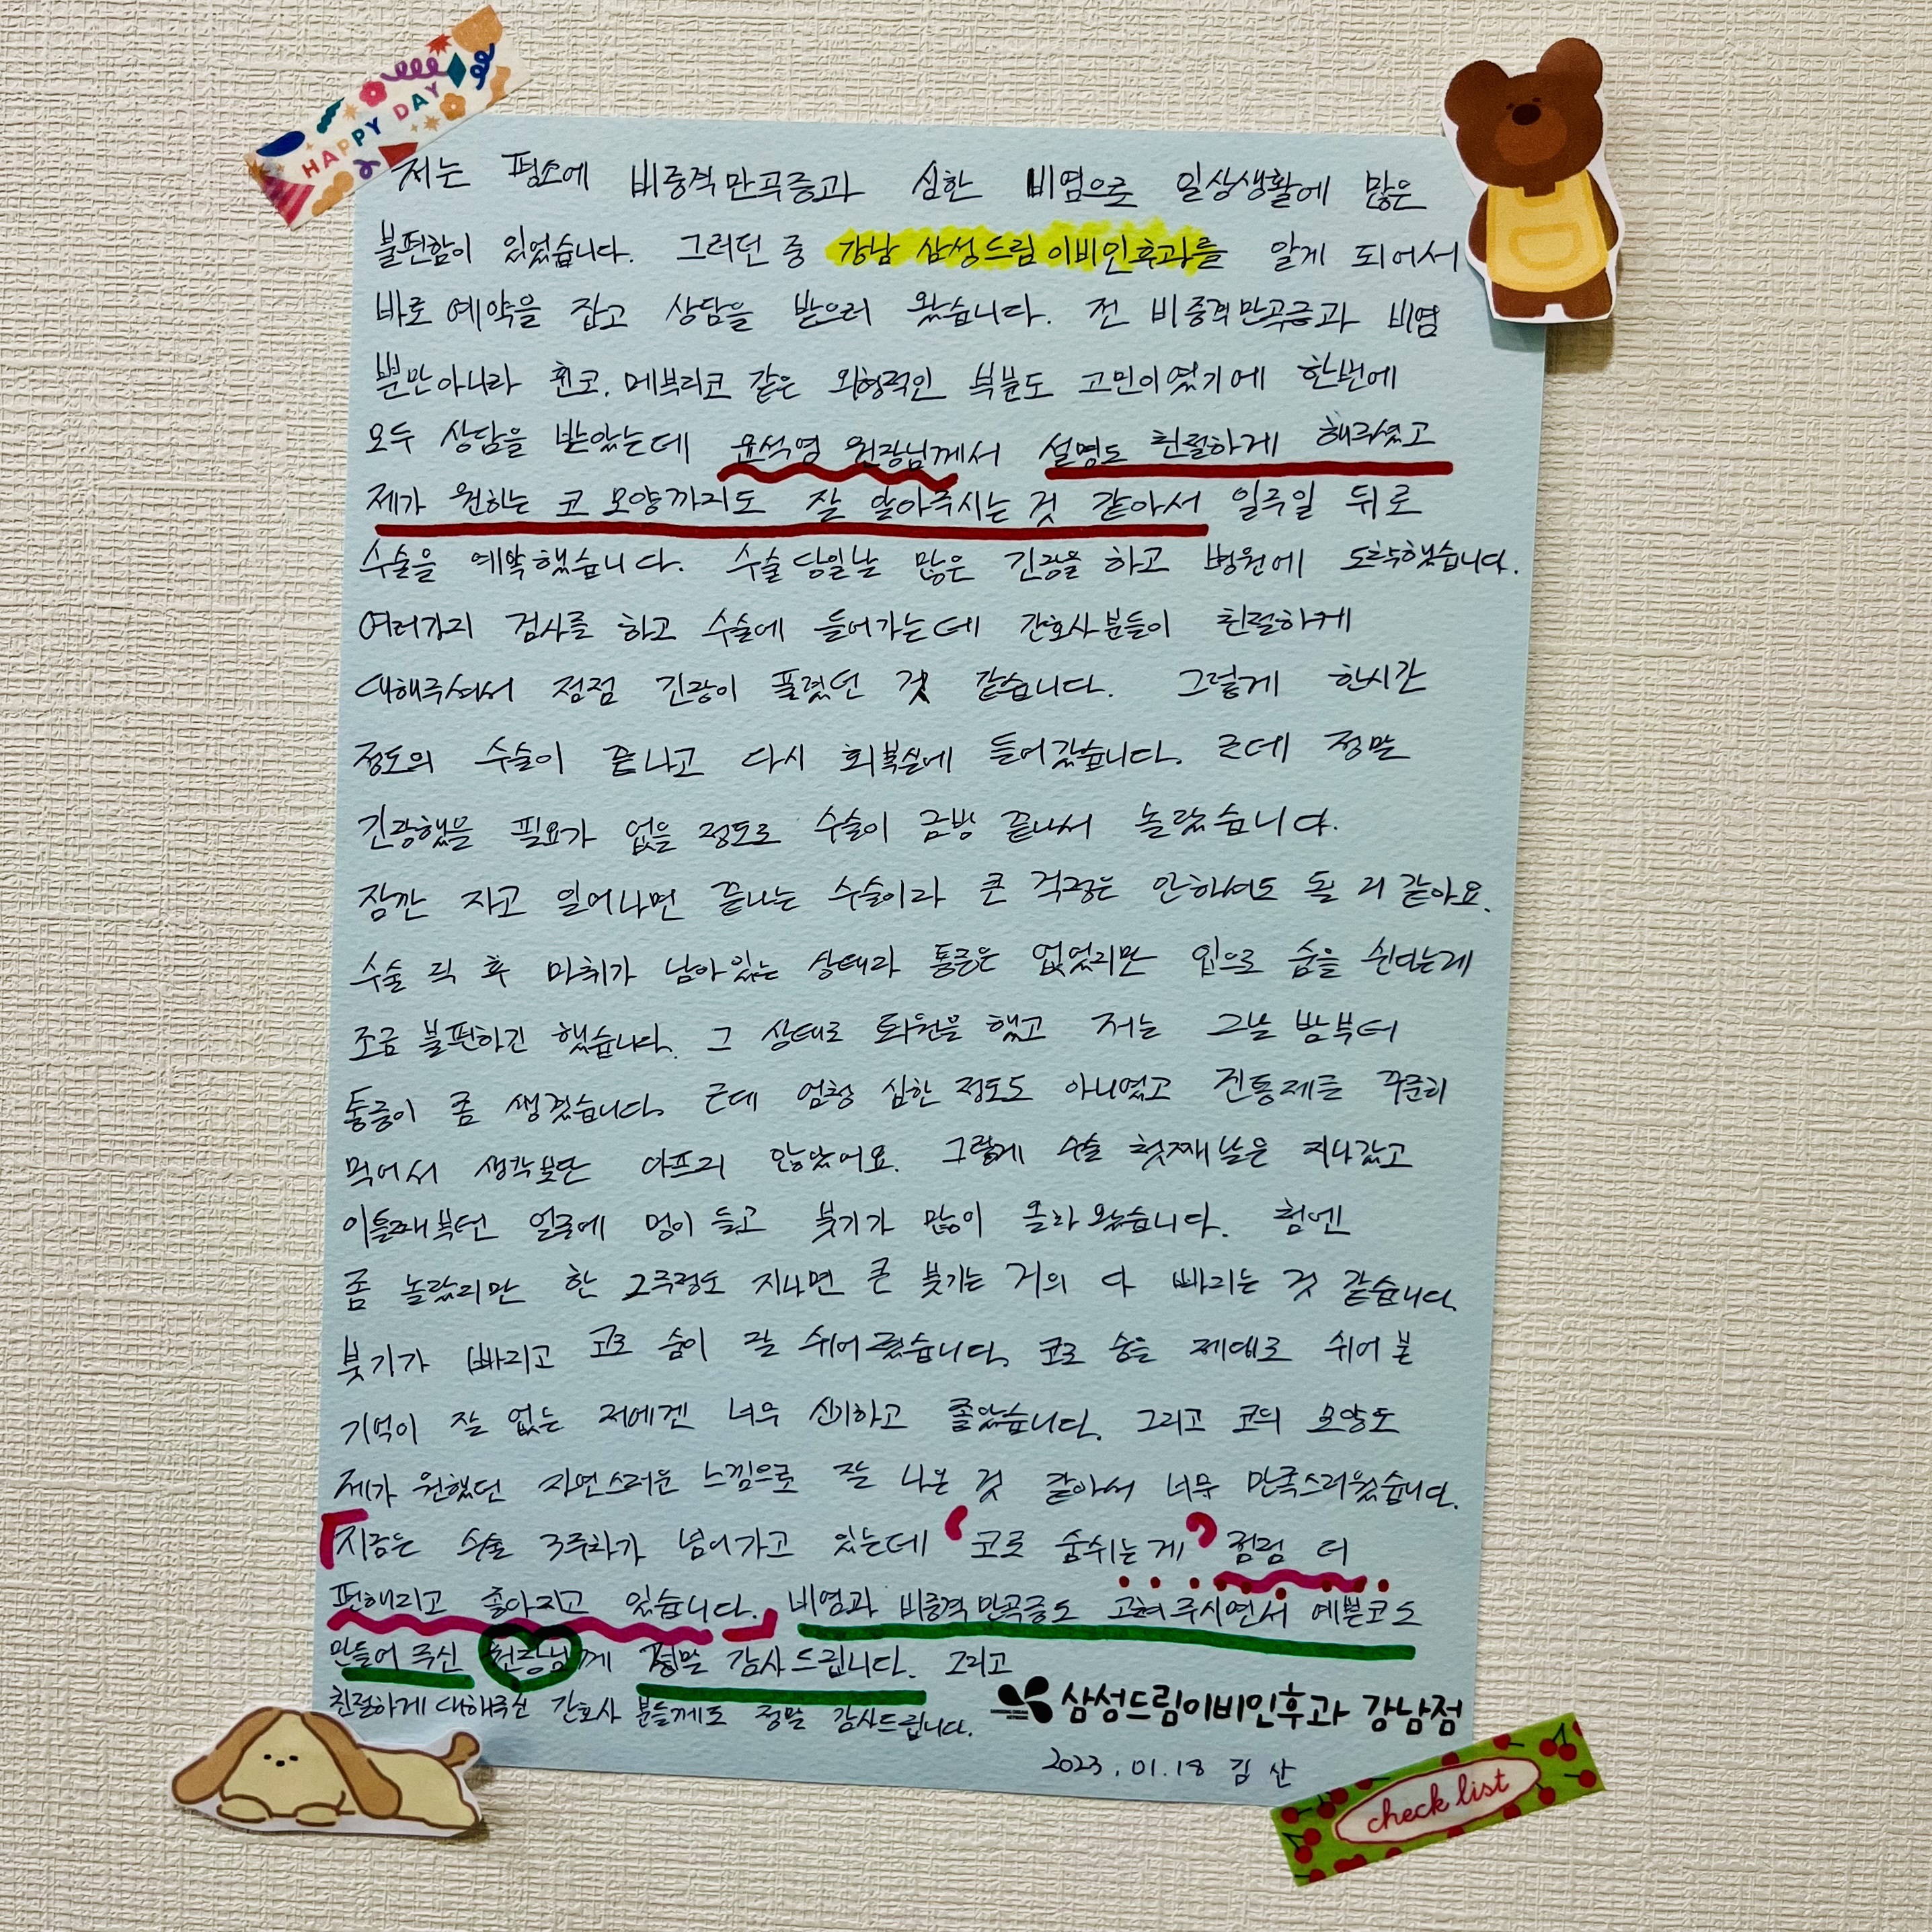 HAPPY DAY
저는 평소에 비중격만곡증과 심한 비염으로 일상생활에 많은
불편함이 있었습니다. 그러던 중 강남 삼성드림이비인후과를 알게 되어서
바로 예약을 잡고 상담을 받으러 왔습니다. 전 비중격만곡증과 비염
뿐만아니라 휜코, 메부리코 같은 외형적인 부분도 고민이였기에 한번에
모두 상담을 받았는데 윤석영 원장님께서 설명도 친절하게 해주셨고
제가 원하는 코 모양까지도 잘 알아주시는 것 같아서 일주일 뒤로
수술을 예약했습니다. 수술 당일날 많은 긴장을 하고 병원에 도착했습니다.
여러가지 검사를 하고 수술에 들어가는데 간호사분들이 친절하게
대해주셔서 점점 긴장이 풀렸던 것 같습니다. 그렇게 한시간
정도의 수술이 끝나고 다시 회복실에 들어갔습니다. 근데 정말
긴장했을 필요가 없을 정도로 수술이 금방 끝나서 놀랐습니다.
잠깐 자고 일어나면 끝나는 수술이라 큰 걱정은 안하셔도 될 거 같아요.
수술 직 후 마취가 남아있는 상태라 통증은 없었지만 입으로 숨을 쉰다는게
조금 불편하긴 했습니다. 그 상태로 퇴원을 했고 저는 그날 밤부터
통증이 좀 생겼습니다. 근데 엄청 심한 정도도 아니였고 진통제를 꾸준히
먹어서 생각보단 아프지 않았어요. 그렇게 수술 첫째날은 지나갔고
이틀째부턴 얼굴에 멍이 들고 붓기가 많이 올라왔습니다. 첨엔
좀 놀랐지만 한 2주정도 지나면 큰 붓기는 거의 다 빠지는 것 같습니다.
붓기가 빠지고 코로 숨이 잘 쉬어졌습니다. 코로 숨을 제대로 쉬어 본
기억이 잘 없는 저에겐 너무 신기하고 좋았습니다. 그리고 코의 모양도
제가 원했던 자연스러운 느낌으로 잘 나온 것 같아서 너무 만족스러웠습니다.
「지금은 수술 3주차가 넘어가고 있는데 '코로 숨쉬는게' 점점 더
편해지고 좋아지고 있습니다.」 비염과 비중격만곡증도 고쳐주시면서 예쁜코도
만들어 주신 원장님께 정말 감사드립니다. 그리고
친절하게 대해주신 간호사 분들께도 정말 감사드립니다.
삼성드림이비인후과 강남점
2023.01.18 김 산
check list